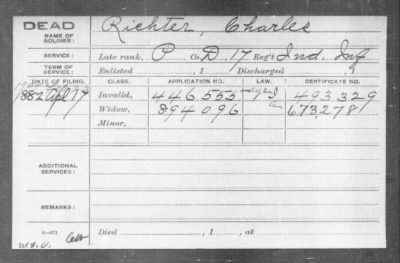 DEAD
NAME OF SOLDIER: Richter, Charles
SERVICE: Late rank, P Co. D, 17 Reg't Ind. Inf
TERM OF SERVICE: Enlisted , 1 Discharged
DATE OF FILING. CLASS. APPLICATION NO. LAW. CERTIFICATE NO.
1882 Apl 17 Invalid, 446,555 493,329
Widow, 894,096 673,278
Minor,
ADDITIONAL SERVICES:
REMARKS:
Died , 1 , at